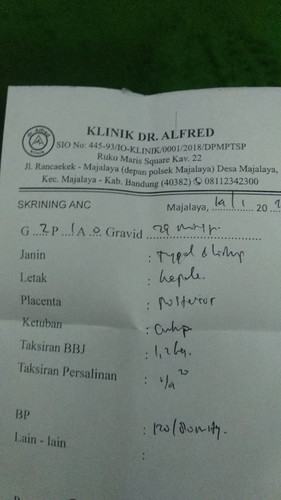 KLINIK DR. ALFRED
SIO No: 445-93/IO-KLINIK/0001/2018/DPMPTSP
Ruko Maris Square Kav. 22
Jl. Rancaekek - Majalaya (depan polsek Majalaya) Desa Majalaya,
Kec. Majalaya - Kab. Bandung (40382) 08112342300
SKRINING ANC
Majalaya, 19/1 20
G 2 P 1 A 0 Gravid 29
Janin : Tunggal hidup
Letak : kepala
Placenta : posterior
Ketuban : Cukup
Taksiran BBJ : 1,2 kg.
Taksiran Persalinan :
BP : 120/80 mmHg.
Lain - lain :